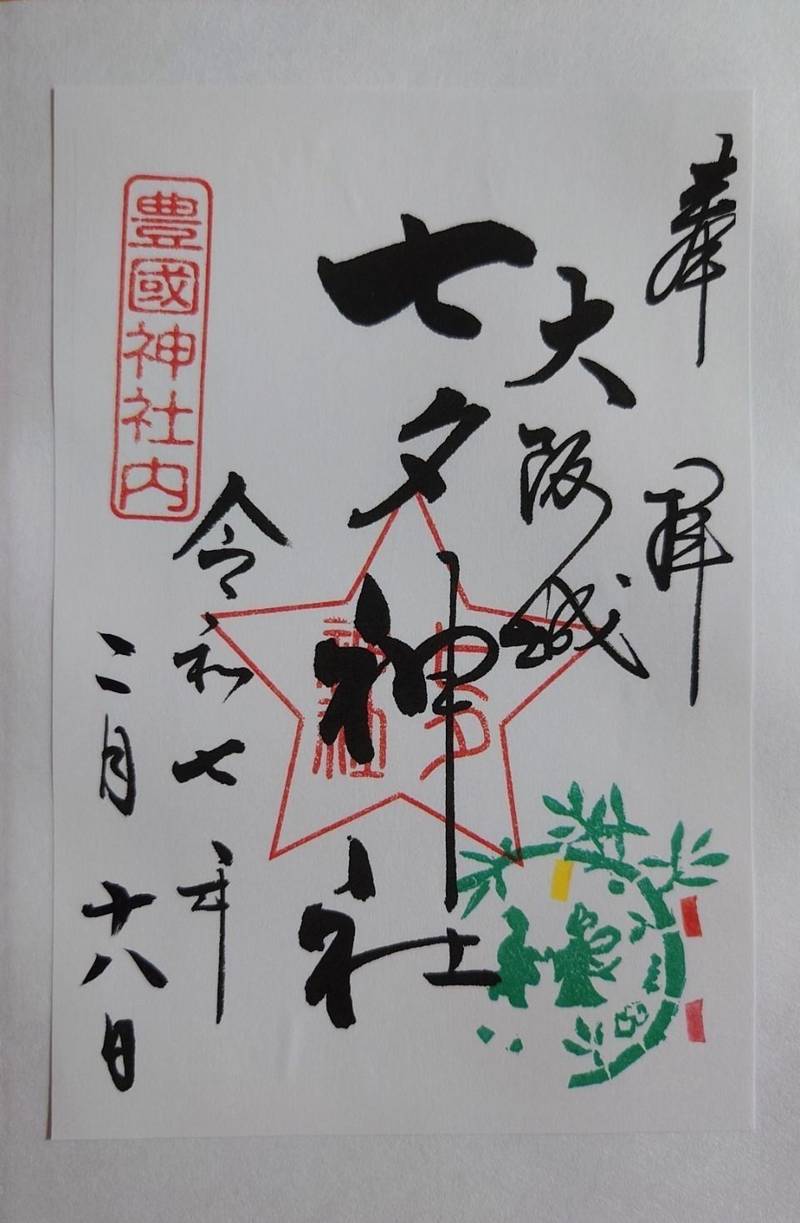 奉拝
大阪城
七夕神社
七夕
神社
令和七年
二月十八日
豊國神社内